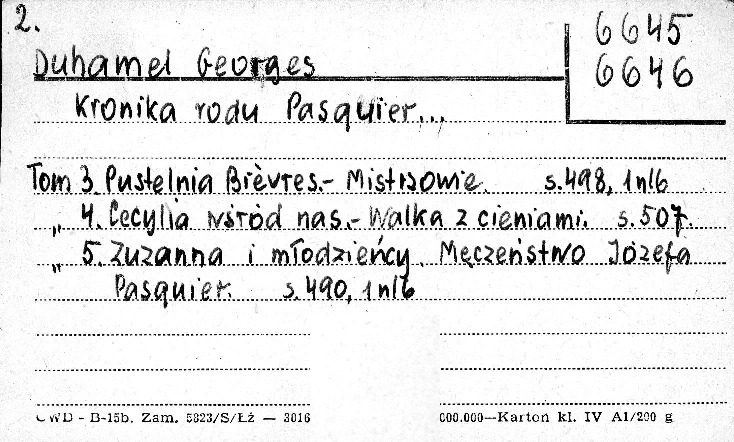 2.
6645
Duhamel Georges
6646
Kronika rodu Pasquier...
Tom 3 Pustelnia Bièvres.- Mistrzowie. s.498, 1 nlb
„ 4. Cecylia wśród nas.- Walka z cieniami. s.507.
„ 5. Zuzanna i młodzieńcy. Męczeństwo Józefa
Pasquier. s.490, 1 nlb
CWD - B-15b. Zam. 5823/S/Łż — 3016
000.000—Karton kl. IV A1/200 g